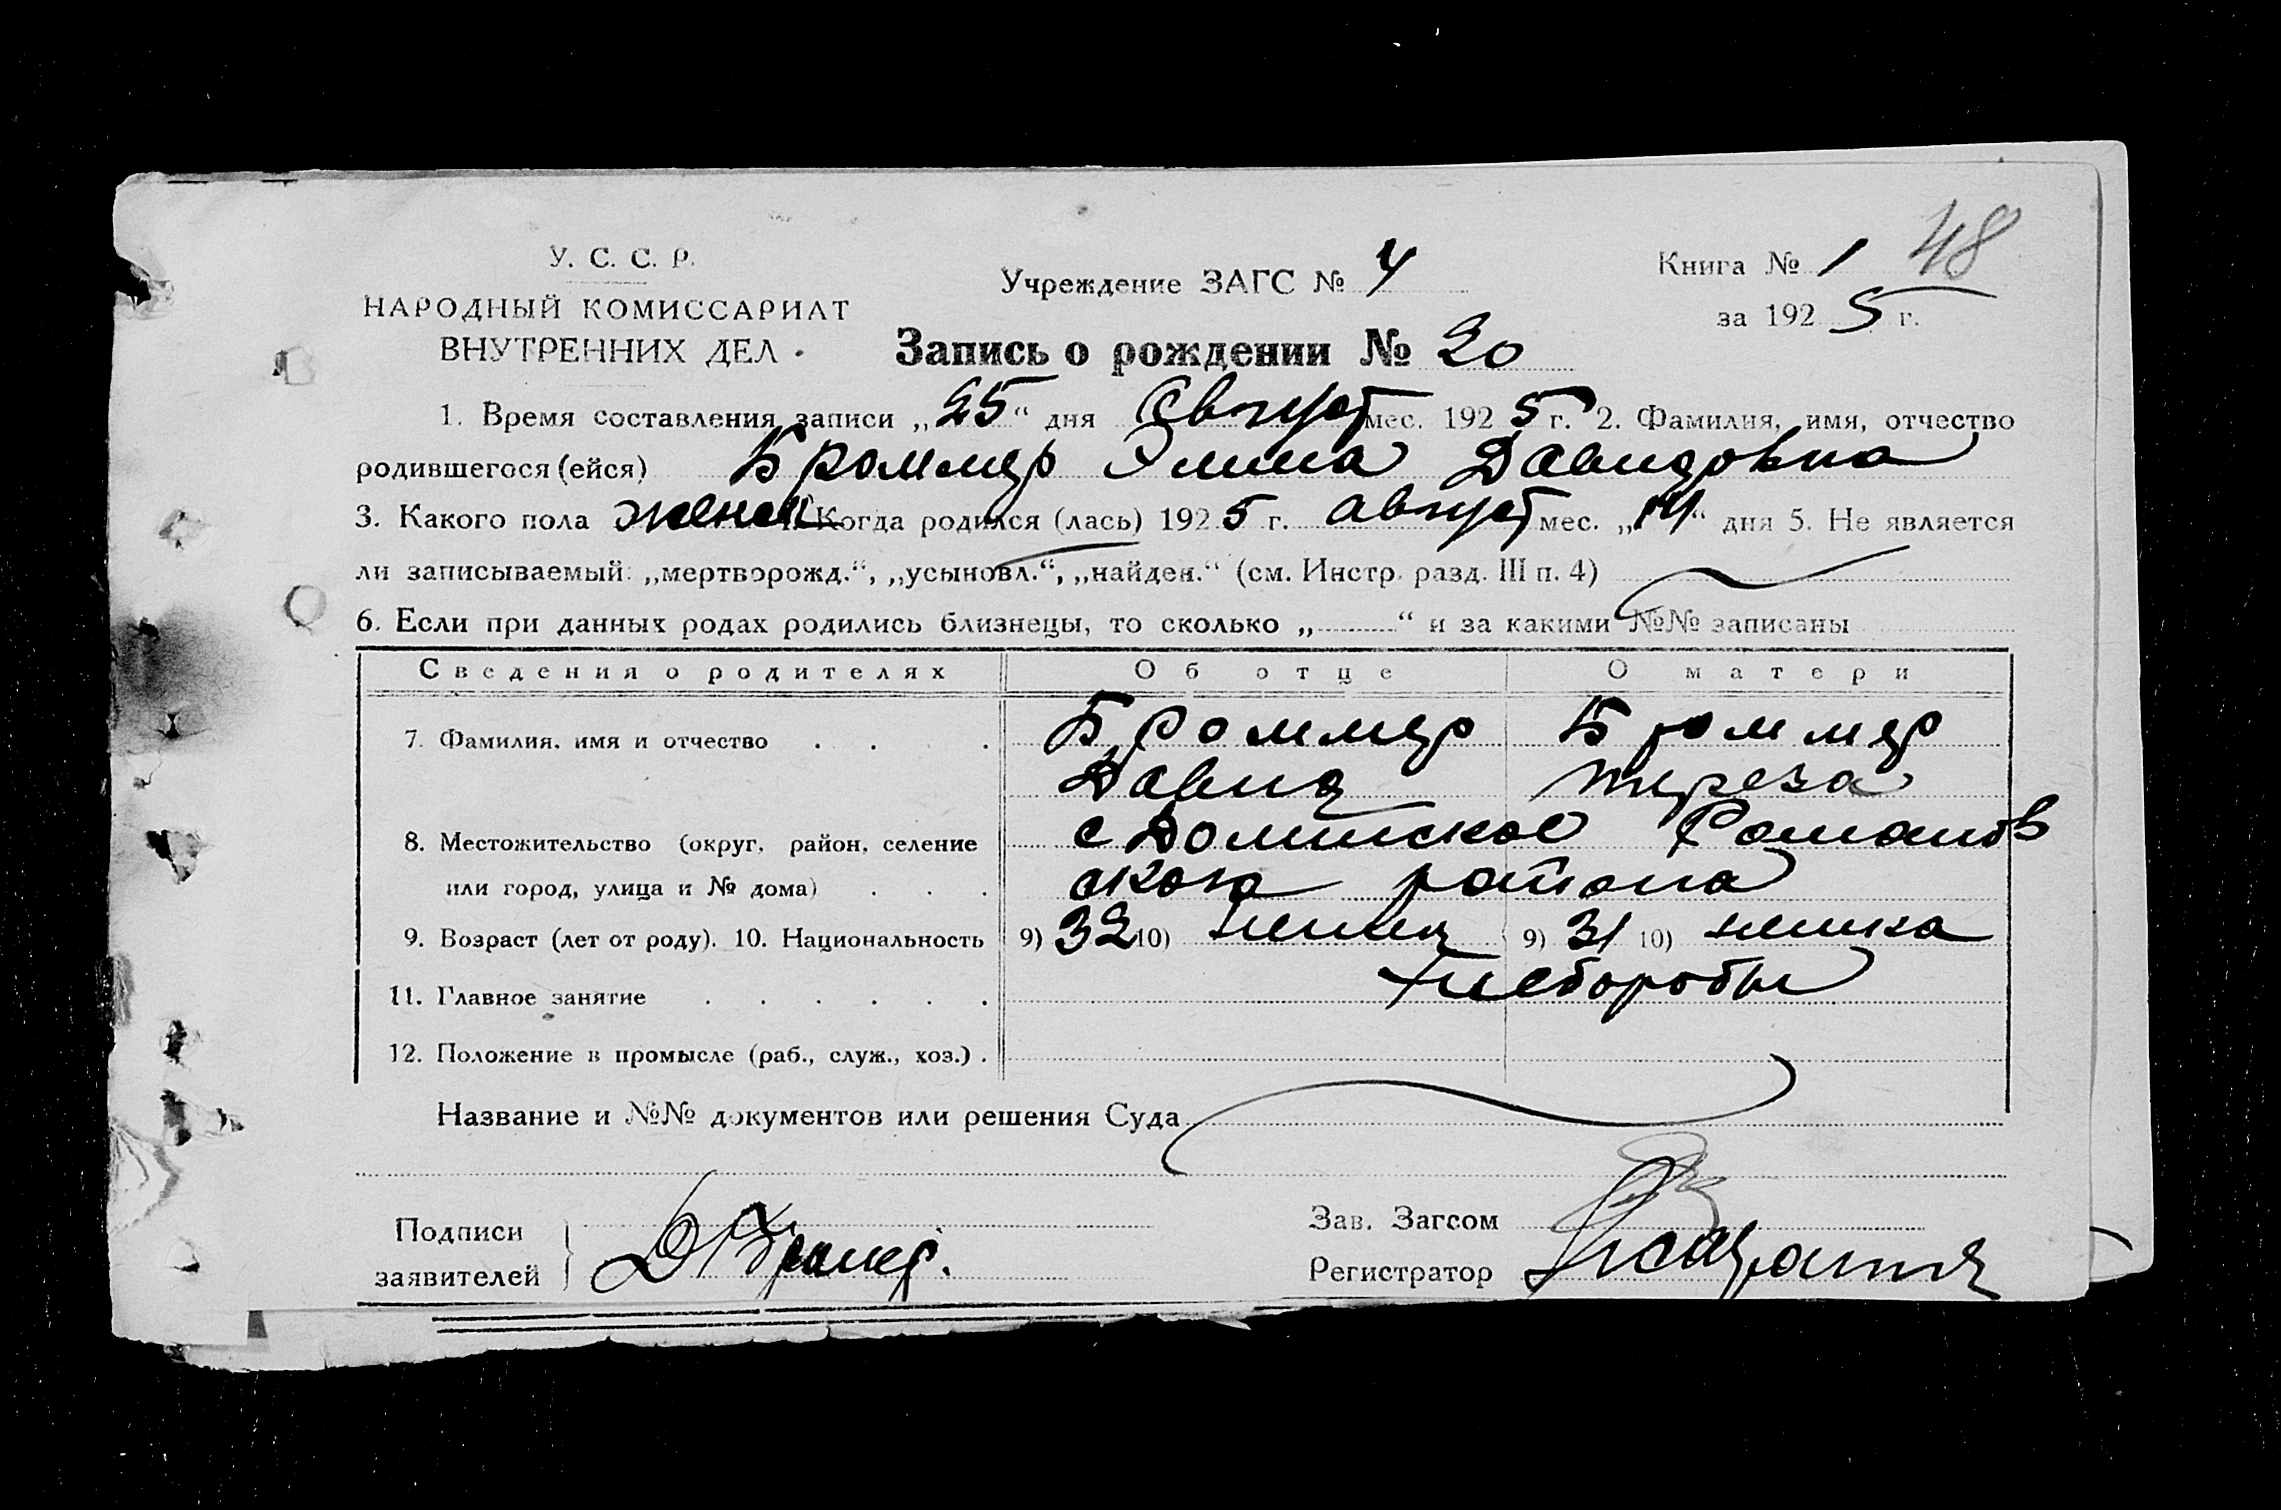 У. С. С. Р.
НАРОДНЫЙ КОМИССАРИАТ
ВНУТРЕННИХ ДЕЛ
Учреждение ЗАГС № 4
Книга № 1 48
за 192 5 г.
Запись о рождении № 20
1. Время составления записи „25“ дня Август мес. 192 5 г. 2. Фамилия, имя, отчество
родившегося (ейся) Броммер Элина Давидовна
3. Какого пола женск Когда родился (лась) 192 5 г. август мес. „14“ дня 5. Не является
ли записываемый: „мертворожд.“, „усыновл.“, „найден.“ (см. Инстр. разд. III п. 4)
6. Если при данных родах родились близнецы, то сколько „ “ и за какими №№ записаны
Сведения о родителях Об отце О матери
7. Фамилия, имя и отчество Броммер Броммер
Давид Тереза
8. Местожительство (округ, район, селение с Романов
или город, улица и № дома) ского района
9. Возраст (лет от роду). 10. Национальность 9) 32 10) немец 9) 31 10) немка
11. Главное занятие Хлеборобы
12. Положение в промысле (раб., служ., хоз.)
Название и №№ документов или решения Суда
Подписи
заявителей Д Бромер.
Зав. Загсом
Регистратор